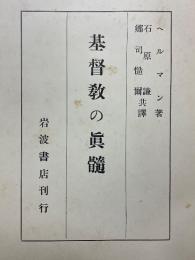 ヘルマン著
石原謙
郷司慥爾共譯
基督敎の眞髓
岩波書店刊行